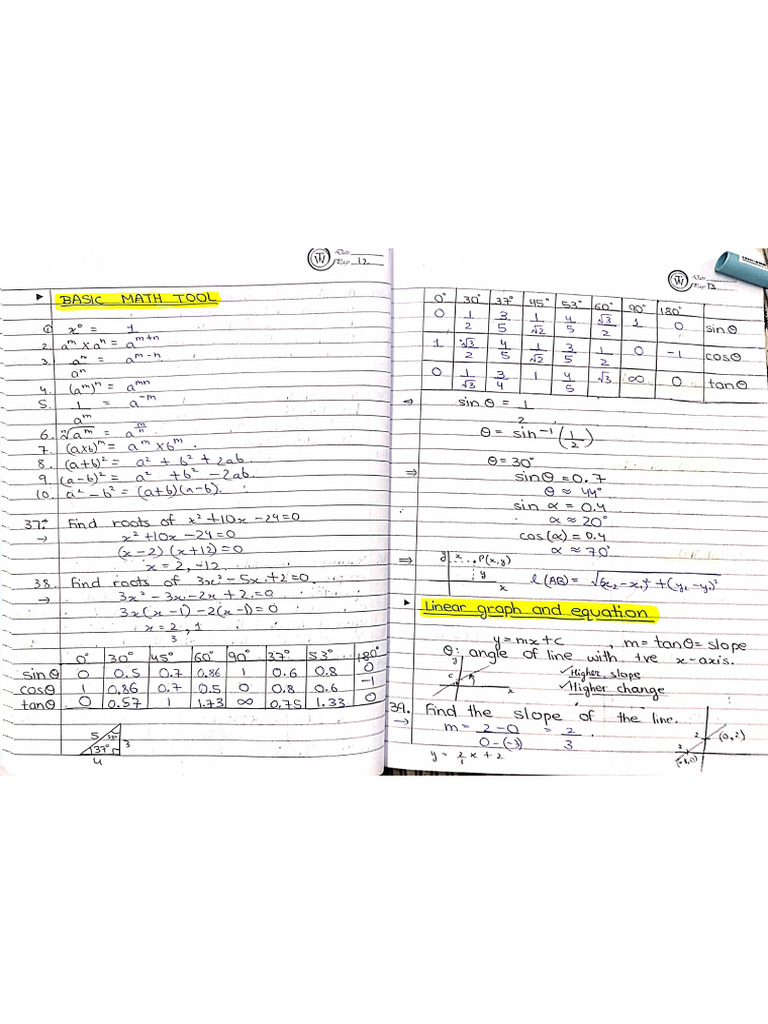 TW Date
Page 12
▶ BASIC MATH TOOL
① x⁰ = 1
2. aᵐ × aⁿ = aᵐ⁺ⁿ
3. aᵐ/aⁿ = aᵐ⁻ⁿ
4. (aᵐ)ⁿ = aᵐⁿ
5. 1/aᵐ = a⁻ᵐ
6. ⁿ√aᵐ = a^(m/n)
7. (a×b)ᵐ = aᵐ × bᵐ.
8. (a+b)² = a² + b² + 2ab.
9. (a-b)² = a² + b² - 2ab.
10. a² - b² = (a+b)(a-b).
37. Find roots of x² + 10x - 24 = 0
→ x² + 10x - 24 = 0
(x-2)(x+12) = 0
x = 2, -12.
38. Find roots of 3x² - 5x + 2 = 0.
→ 3x² - 3x - 2x + 2 = 0
3x(x-1) - 2(x-1) = 0
x = 2/3, 1
0° 30° 45° 60° 90° 37° 53° 180°
sinθ 0 0.5 0.7 0.86 1 0.6 0.8 0
cosθ 1 0.86 0.7 0.5 0 0.8 0.6 -1
tanθ 0 0.57 1 1.73 ∞ 0.75 1.33 0
5 53° 37° 3
4
TW Date
Page 13
0° 30° 37° 45° 53° 60° 90° 180°
0 1/2 3/5 1/√2 4/5 √3/2 1 0 sinθ
1 √3/2 4/5 1/√2 3/5 1/2 0 -1 cosθ
0 1/√3 3/4 1 4/5 √3 ∞ 0 tanθ
⇒ sinθ = 1/2
θ = sin⁻¹(1/2)
θ = 30°
⇒ sinθ = 0.7
θ ≈ 44°
sin α = 0.4
α ≈ 20°
cos(α) = 0.4
α ≈ 70°
⇒ y x P(x,y)
y
x
l(AB) = √(x₂-x₁)² + (y₂-y₁)²
▶ Linear graph and equation
y = mx + c, m = tanθ = slope
θ: angle of line with +ve x-axis.
y c x
✓Higher slope
✓Higher change
39. Find the slope of the line.
→ m = 2-0/0-(-3) = 2/3.
y = 2/3 x + 2
2 (0,2)